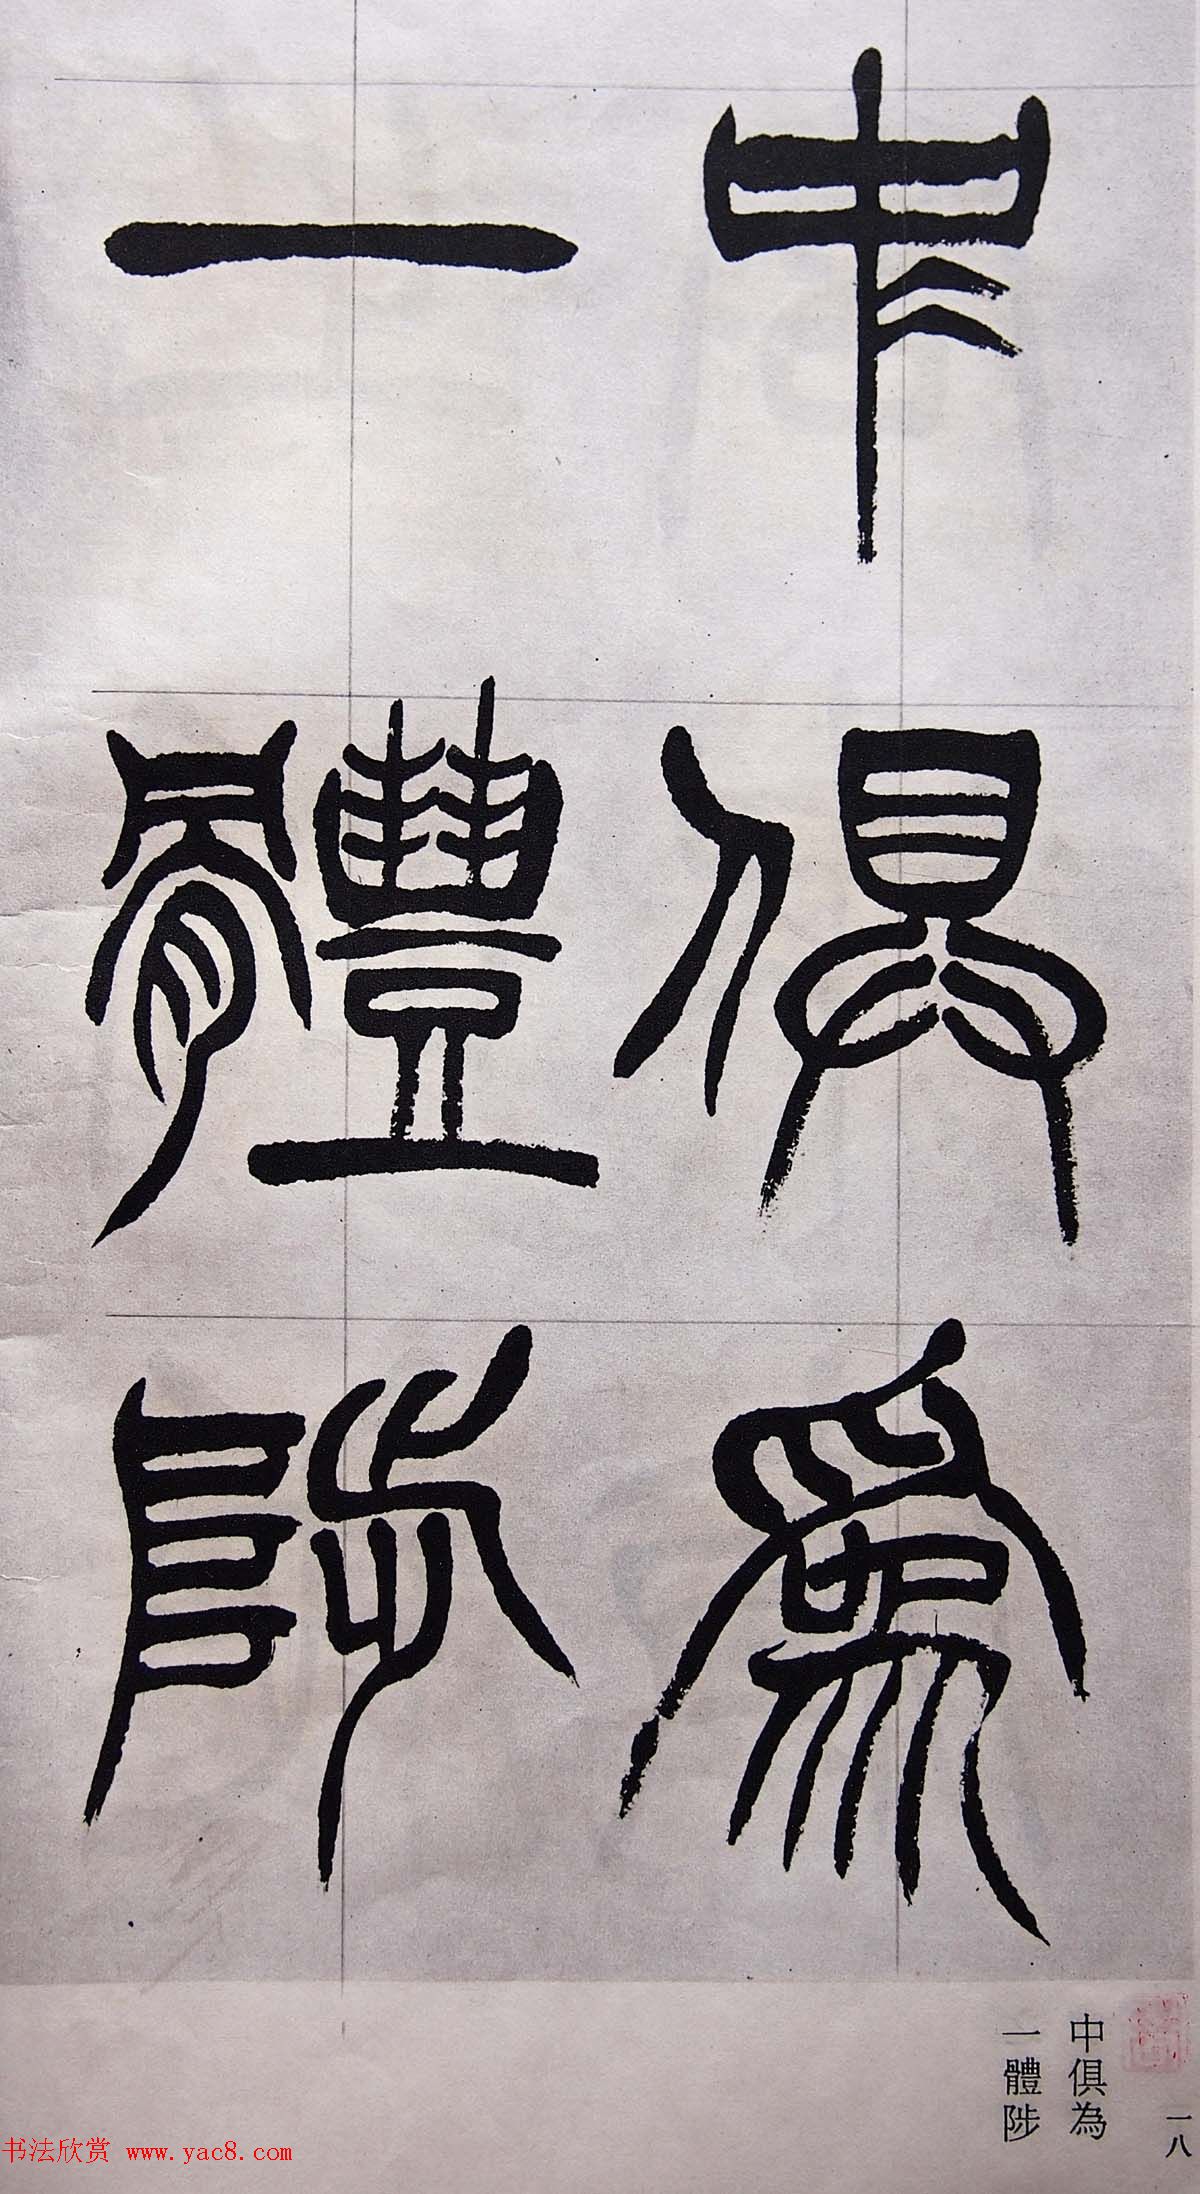 中俱爲
一體陟
中俱為
一體陟
一八
书法欣赏 www.yac8.com